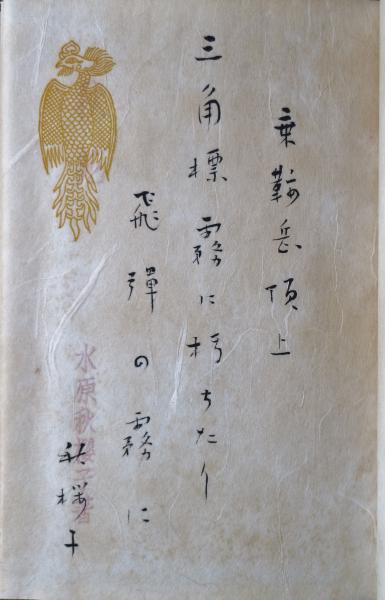 乗鞍岳頂上
三角標霧に朽ちたり
飛彈の霧に
秋櫻子
水原秋櫻子著